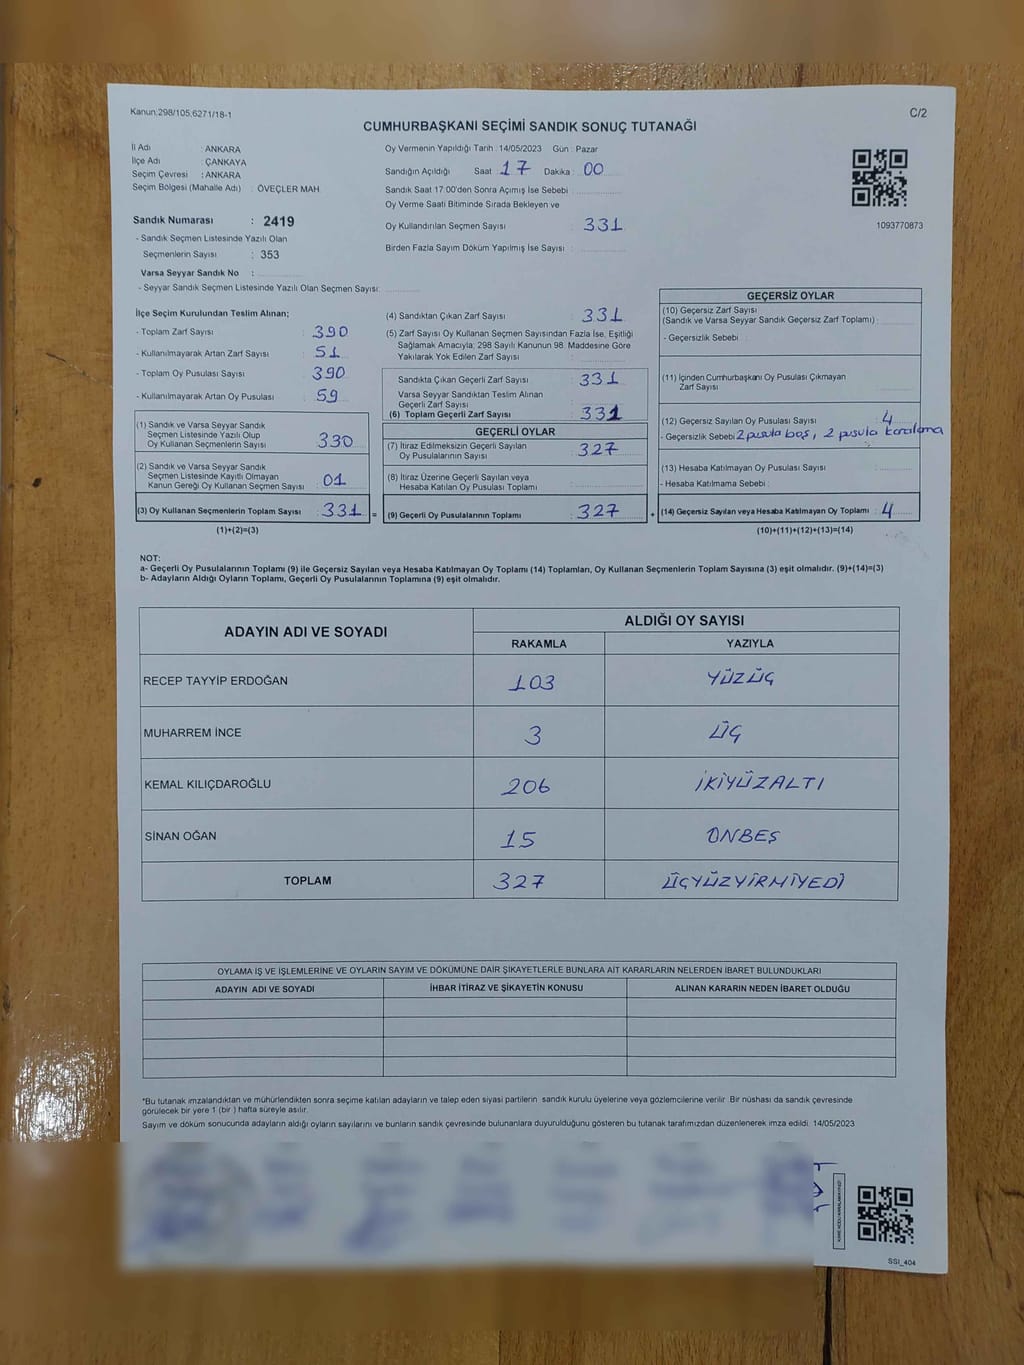 Kanun:298/105,6271/18-1
C/2
CUMHURBAŞKANI SEÇİMİ SANDIK SONUÇ TUTANAĞI
İl Adı : ANKARA
İlçe Adı : ÇANKAYA
Seçim Çevresi : ANKARA
Seçim Bölgesi (Mahalle Adı) : ÖVEÇLER MAH
Sandık Numarası : 2419
- Sandık Seçmen Listesinde Yazılı Olan
Seçmenlerin Sayısı : 353
Varsa Seyyar Sandık No :
- Seyyar Sandık Seçmen Listesinde Yazılı Olan Seçmen Sayısı:
Oy Vermenin Yapıldığı Tarih : 14/05/2023 Gün : Pazar
Sandığın Açıldığı Saat : 17 Dakika : 00
Sandık Saat 17:00'den Sonra Açımış İse Sebebi :
Oy Verme Saati Bitiminde Sırada Bekleyen ve
Oy Kullandırılan Seçmen Sayısı : 331
Birden Fazla Sayım Döküm Yapılmış İse Sayısı :
1093770873
İlçe Seçim Kurulundan Teslim Alınan;
- Toplam Zarf Sayısı : 390
- Kullanılmayarak Artan Zarf Sayısı : 51
- Toplam Oy Pusulası Sayısı : 390
- Kullanılmayarak Artan Oy Pusulası : 59
(1) Sandık ve Varsa Seyyar Sandık
Seçmen Listesinde Yazılı Olup
Oy Kullanan Seçmenlerin Sayısı : 330
(2) Sandık ve Varsa Seyyar Sandık
Seçmen Listesinde Kayıtlı Olmayan
Kanun Gereği Oy Kullanan Seçmen Sayısı : 01
(3) Oy Kullanan Seçmenlerin Toplam Sayısı : 331 =
(1)+(2)=(3)
(4) Sandıktan Çıkan Zarf Sayısı : 331
(5) Zarf Sayısı Oy Kullanan Seçmen Sayısından Fazla İse, Eşitliği
Sağlamak Amacıyla; 298 Sayılı Kanunun 98. Maddesine Göre
Yakılarak Yok Edilen Zarf Sayısı :
Sandıkta Çıkan Geçerli Zarf Sayısı : 331
Varsa Seyyar Sandıktan Teslim Alınan
Geçerli Zarf Sayısı :
(6) Toplam Geçerli Zarf Sayısı : 331
GEÇERLİ OYLAR
(7) İtiraz Edilmeksizin Geçerli Sayılan
Oy Pusulalarının Sayısı : 327
(8) İtiraz Üzerine Geçerli Sayılan veya
Hesaba Katılan Oy Pusulası Toplamı :
(9) Geçerli Oy Pusulalarının Toplamı : 327 +
GEÇERSİZ OYLAR
(10) Geçersiz Zarf Sayısı
(Sandık ve Varsa Seyyar Sandık Geçersiz Zarf Toplamı) :
- Geçersizlik Sebebi :
(11) İçinden Cumhurbaşkanı Oy Pusulası Çıkmayan
Zarf Sayısı :
(12) Geçersiz Sayılan Oy Pusulası Sayısı : 4
- Geçersizlik Sebebi 2 pusula boş, 2 pusula karalama
(13) Hesaba Katılmayan Oy Pusulası Sayısı :
- Hesaba Katılmama Sebebi :
(14) Geçersiz Sayılan veya Hesaba Katılmayan Oy Toplamı : 4
(10)+(11)+(12)+(13)=(14)
NOT:
a- Geçerli Oy Pusulalarının Toplamı (9) ile Geçersiz Sayılan veya Hesaba Katılmayan Oy Toplamı (14) Toplamları, Oy Kullanan Seçmenlerin Toplam Sayısına (3) eşit olmalıdır. (9)+(14)=(3)
b- Adayların Aldığı Oyların Toplamı, Geçerli Oy Pusulalarının Toplamına (9) eşit olmalıdır.
ADAYIN ADI VE SOYADI ALDIĞI OY SAYISI
RAKAMLA YAZIYLA
RECEP TAYYİP ERDOĞAN 103 YÜZÜÇ
MUHARREM İNCE 3 ÜÇ
KEMAL KILIÇDAROĞLU 206 İKİYÜZALTI
SİNAN OĞAN 15 ONBEŞ
TOPLAM 327 ÜÇYÜZYİRMİYEDİ
OYLAMA İŞ VE İŞLEMLERİNE VE OYLARIN SAYIM VE DÖKÜMÜNE DAİR ŞİKAYETLERLE BUNLARA AİT KARARLARIN NELERDEN İBARET BULUNDUKLARI
ADAYIN ADI VE SOYADI İHBAR İTİRAZ VE ŞİKAYETİN KONUSU ALINAN KARARIN NEDEN İBARET OLDUĞU
*Bu tutanak imzalandıktan ve mühürlendikten sonra seçime katılan adayların ve talep eden siyasi partilerin sandık kurulu üyelerine veya gözlemcilerine verilir. Bir nüshası da sandık çevresinde
görülecek bir yere 1 (bir ) hafta süreyle asılır.
Sayım ve döküm sonucunda adayların aldığı oyların sayılarını ve bunların sandık çevresinde bulunanlara duyurulduğunu gösteren bu tutanak tarafımızdan düzenlenerek imza edildi. 14/05/2023
SSI_404